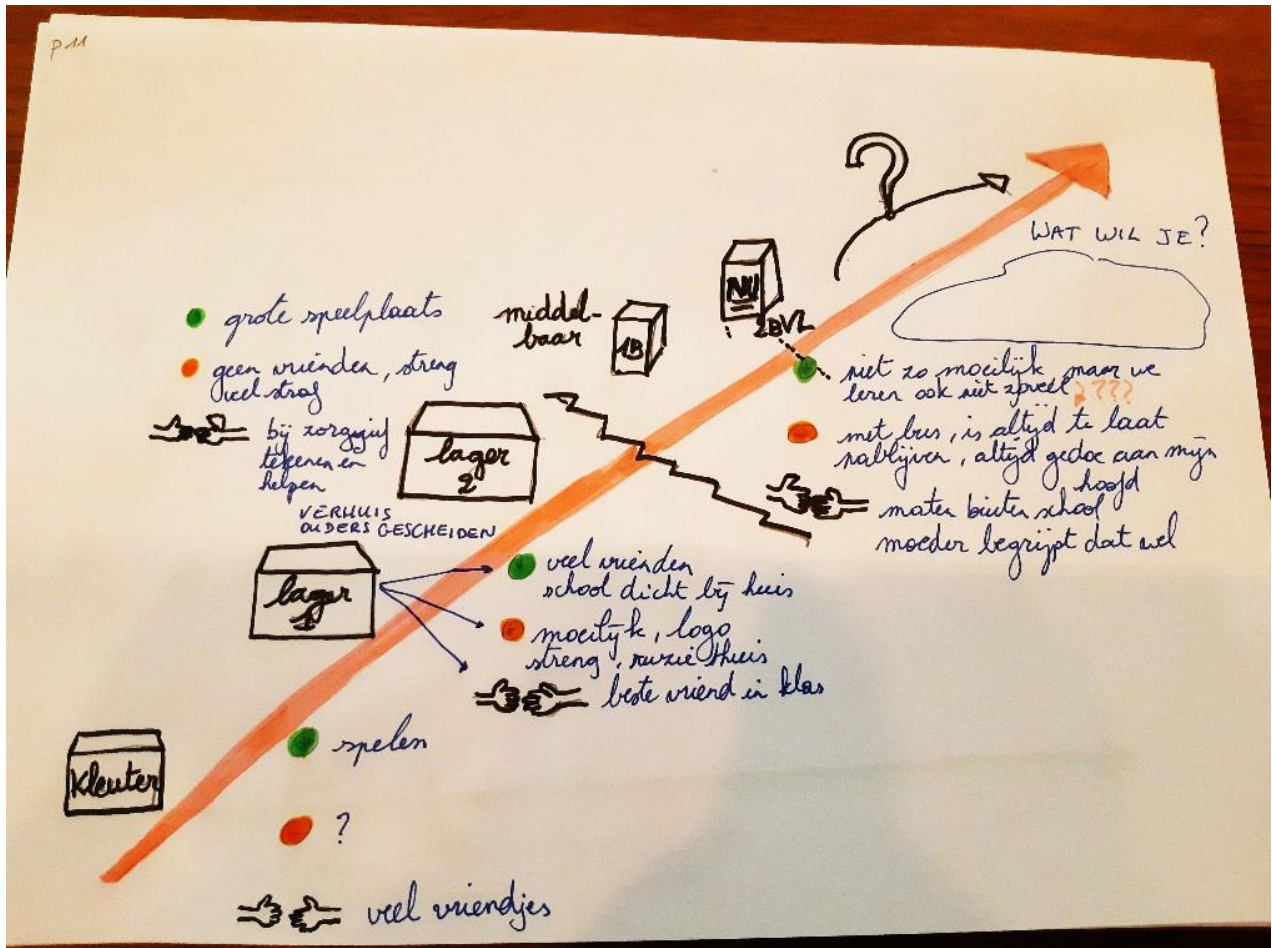 P 11
?
WAT WIL JE?
NU
2BVL
middel-
baar
1B
grote speelplaats
geen vrienden, streng
veel straf
bij zorgjuf
tekenen en
helpen
lager
2
niet zo moeilijk, maar we
leren ook niet zoveel ????
met bus, is altijd te laat
nablijven, altijd gedoe aan mijn
hoofd
maten buiten school
moeder begrijpt dat wel
VERHUIS
OUDERS GESCHEIDEN
lager
1
veel vrienden
school dicht bij huis
moeilijk, logo
streng, ruzie thuis
beste vriend in klas
Kleuter
spelen
?
veel vriendjes